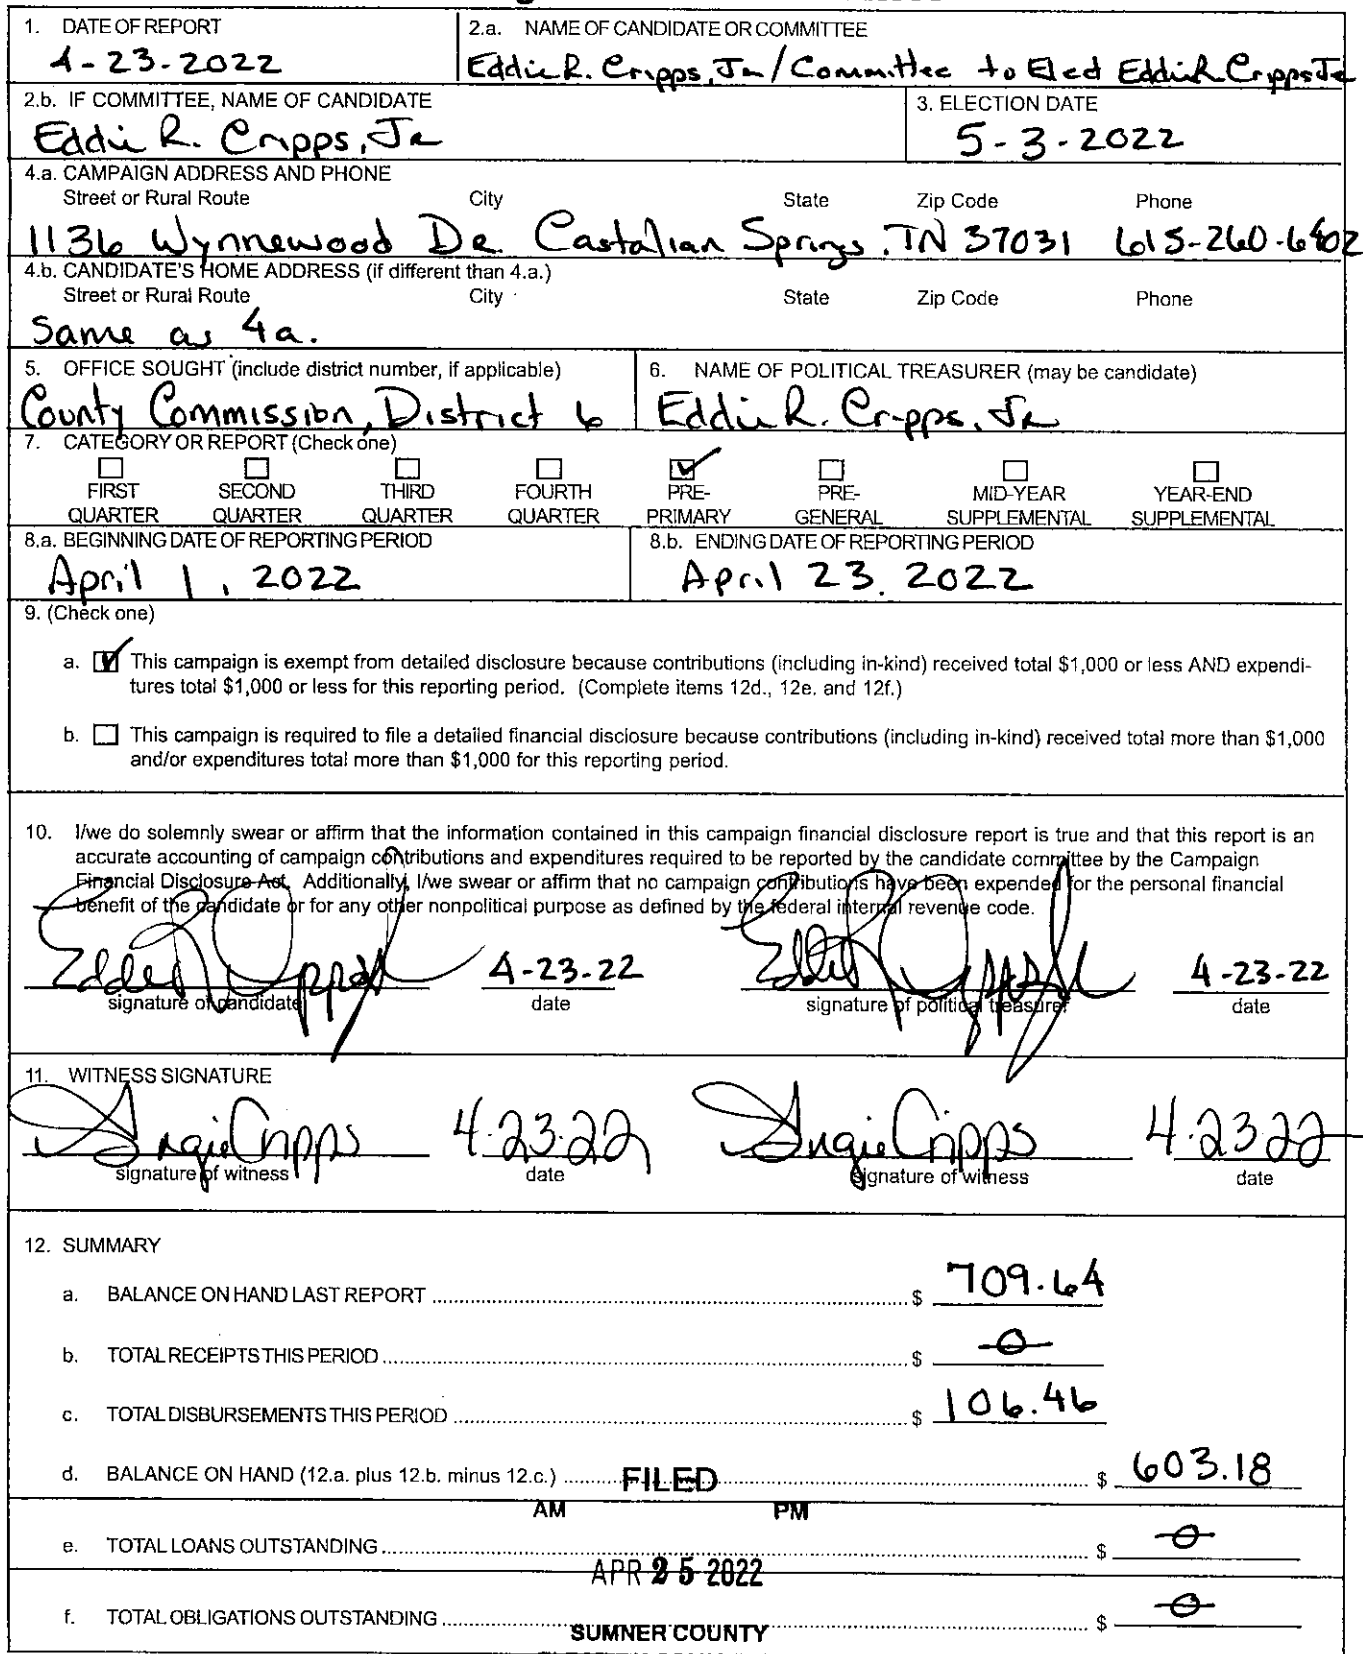 1. DATE OF REPORT
4-23-2022
2.a. NAME OF CANDIDATE OR COMMITTEE
Eddie R. Cripps, Jr / Committee to Elect Eddie R Cripps Jr
2.b. IF COMMITTEE, NAME OF CANDIDATE
Eddie R. Cripps, Jr
3. ELECTION DATE
5-3-2022
4.a. CAMPAIGN ADDRESS AND PHONE
Street or Rural Route City State Zip Code Phone
1136 Wynnewood Dr. Castalian Springs, TN 37031 615-260-6402
4.b. CANDIDATE'S HOME ADDRESS (if different than 4.a.)
Street or Rural Route City State Zip Code Phone
Same as 4a.
5. OFFICE SOUGHT (include district number, if applicable)
County Commission, District 6
6. NAME OF POLITICAL TREASURER (may be candidate)
Eddie R. Cripps, Jr
7. CATEGORY OR REPORT (Check one)
FIRST QUARTER
SECOND QUARTER
THIRD QUARTER
FOURTH QUARTER
PRE-PRIMARY
PRE-GENERAL
MID-YEAR SUPPLEMENTAL
YEAR-END SUPPLEMENTAL
8.a. BEGINNING DATE OF REPORTING PERIOD
April 1, 2022
8.b. ENDING DATE OF REPORTING PERIOD
April 23, 2022
9. (Check one)
a. This campaign is exempt from detailed disclosure because contributions (including in-kind) received total $1,000 or less AND expendi-
tures total $1,000 or less for this reporting period. (Complete items 12d., 12e. and 12f.)
b. This campaign is required to file a detailed financial disclosure because contributions (including in-kind) received total more than $1,000
and/or expenditures total more than $1,000 for this reporting period.
10. I/we do solemnly swear or affirm that the information contained in this campaign financial disclosure report is true and that this report is an
accurate accounting of campaign contributions and expenditures required to be reported by the candidate committee by the Campaign
Financial Disclosure Act. Additionally, I/we swear or affirm that no campaign contributions have been expended for the personal financial
benefit of the candidate or for any other nonpolitical purpose as defined by the federal internal revenue code.
Eddie R Cripps Jr 4-23-22 Eddie R Cripps Jr 4-23-22
signature of candidate date signature of political treasurer date
11. WITNESS SIGNATURE
Angie Cripps 4.23.22 Angie Cripps 4.23.22
signature of witness date signature of witness date
12. SUMMARY
a. BALANCE ON HAND LAST REPORT $ 709.64
b. TOTAL RECEIPTS THIS PERIOD $ 0
c. TOTAL DISBURSEMENTS THIS PERIOD $ 106.46
d. BALANCE ON HAND (12.a. plus 12.b. minus 12.c.) $ 603.18
FILED
AM PM
e. TOTAL LOANS OUTSTANDING $ 0
APR 25 2022
f. TOTAL OBLIGATIONS OUTSTANDING $ 0
SUMNER COUNTY